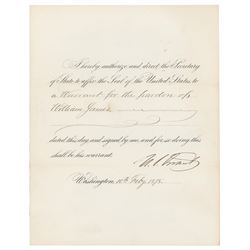 I hereby authorize and direct the Secretary
of State to affix the Seal of the United States, to
a Warrant for the pardon of
William James
dated this day and signed by me, and for so doing this
shall be his warrant.
U. S. Grant
Washington, 10th Feby, 1875.